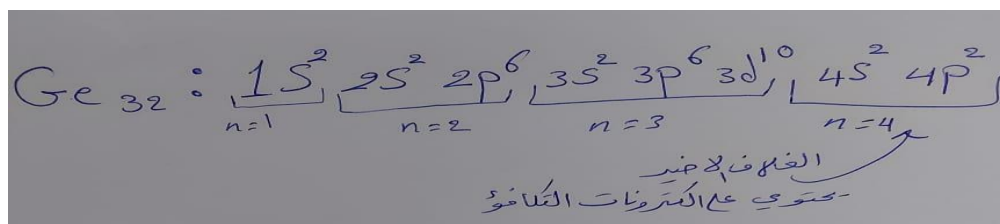 Ge 32 : 1S² 2S² 2p⁶ 3S² 3p⁶ 3d¹⁰ 4S² 4p²
n=1 n=2 n=3 n=4
الغلاف الاخير
يحتوي على الكترونات التكافؤ